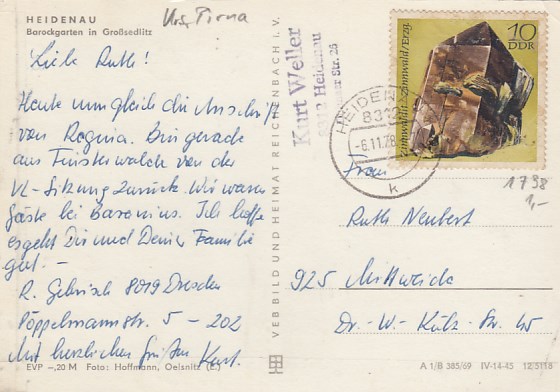 HEIDENAU
Barockgarten in Großsedlitz
Krs. Pirna
Liebe Ruth!
Heute nun gleich die Anschrift
von Regina. Bin gerade
aus Finsterwalde von der
VL-Sitzung zurück. Wir waren
Gäste bei Baronius. Ich hoffe
es geht Dir und Deiner Familie
gut. –
R. Gebrisch 8019 Dresden
Pöppelmannstr. 5 – 202
Mit herzlichen Grüßen Kurt.
EVP –,20 M Foto: Hoffmann, Oelsnitz (E.)
VEB BILD UND HEIMAT REICHENBACH i. V.
Kurt Weller
8312 Heidenau
Str. 25
HEIDEN
831
-6.11.78
k
10
DDR
Zinnwaldit · Zinnwald/Erzg.
1798
1,-
Frau
Ruth Neubert
925 Mittweida
Dr.-W.-Külz-Str. 45
A 1/B 385/69 IV-14-45 12 511